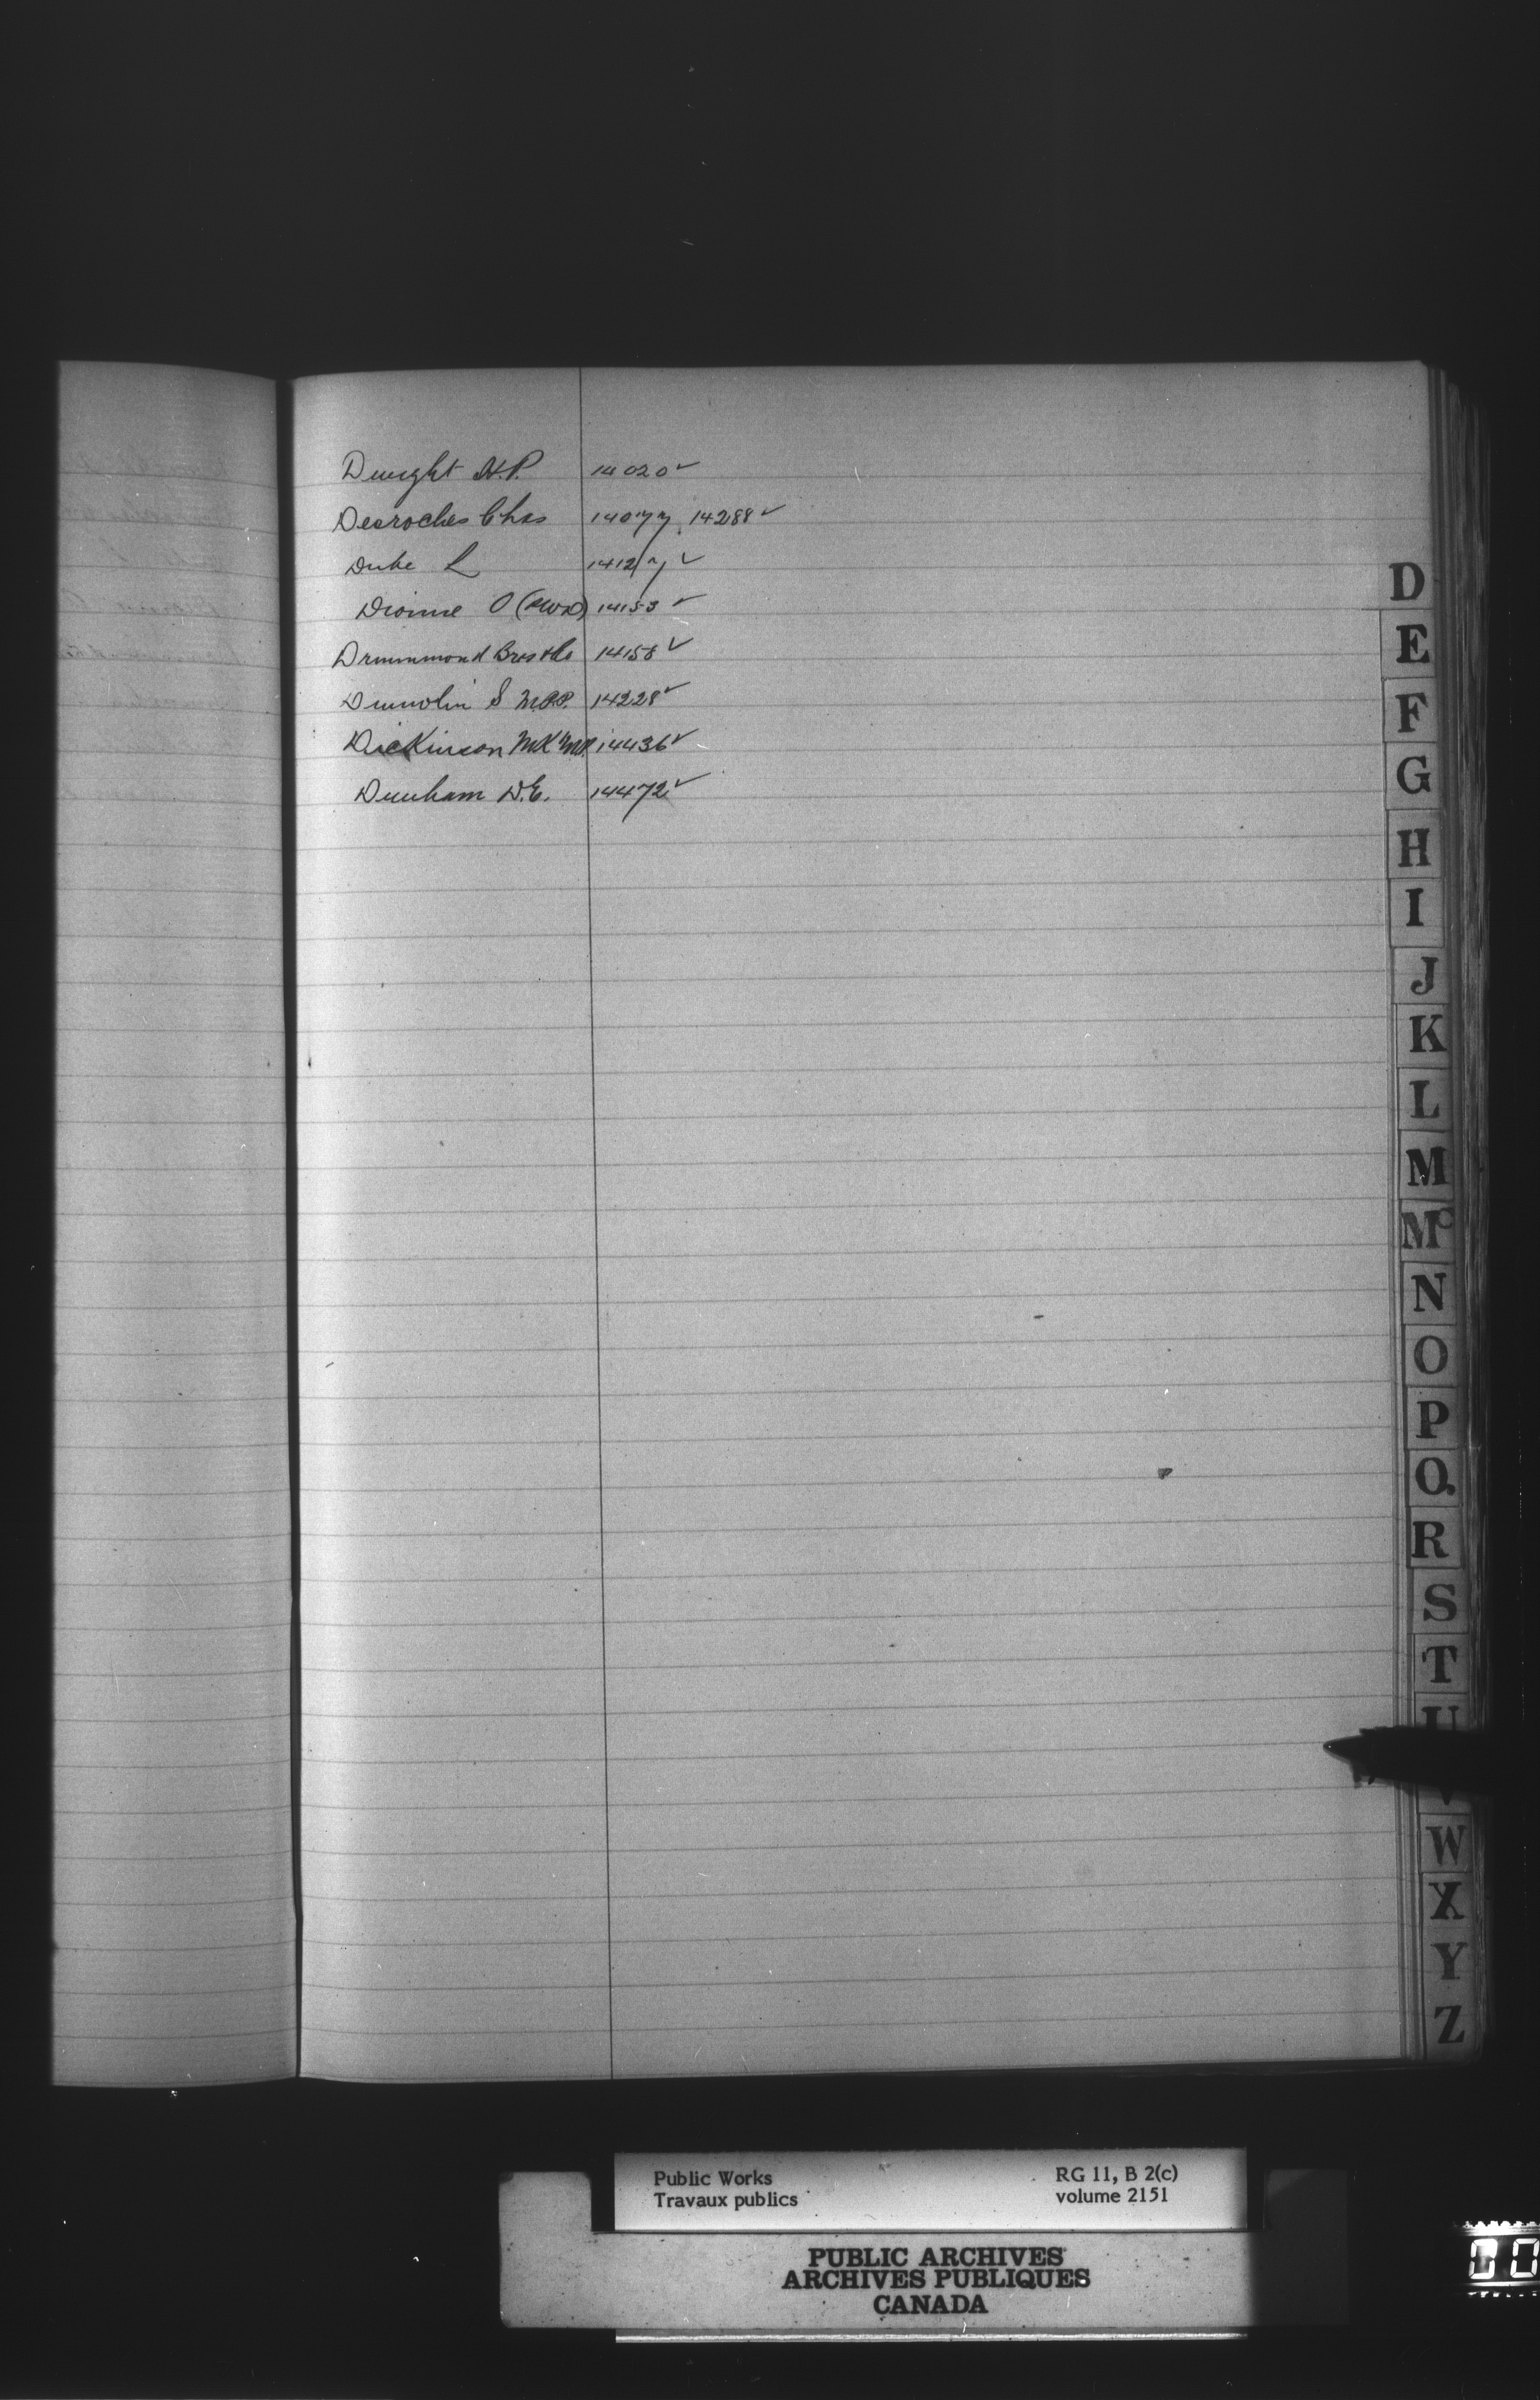 Dwight H.P. 14020 ✓
Desroches Chas 14077, 14288 ✓
Duke L 14127 ✓
Dionne O (PWD) 14153 ✓
Drummond Bros &Co 14158 ✓
Drumolin S M.P.P. 14228 ✓
Dickinson MK MP. 14436 ✓
Dunham D.E. 14472 ✓
D
E
F
G
H
I
J
K
L
M
Mc
N
O
P
Q.
R
S
T
U
V
W
X
Y
Z
Public Works RG 11, B 2(c)
Travaux publics volume 2151
PUBLIC ARCHIVES
ARCHIVES PUBLIQUES
CANADA